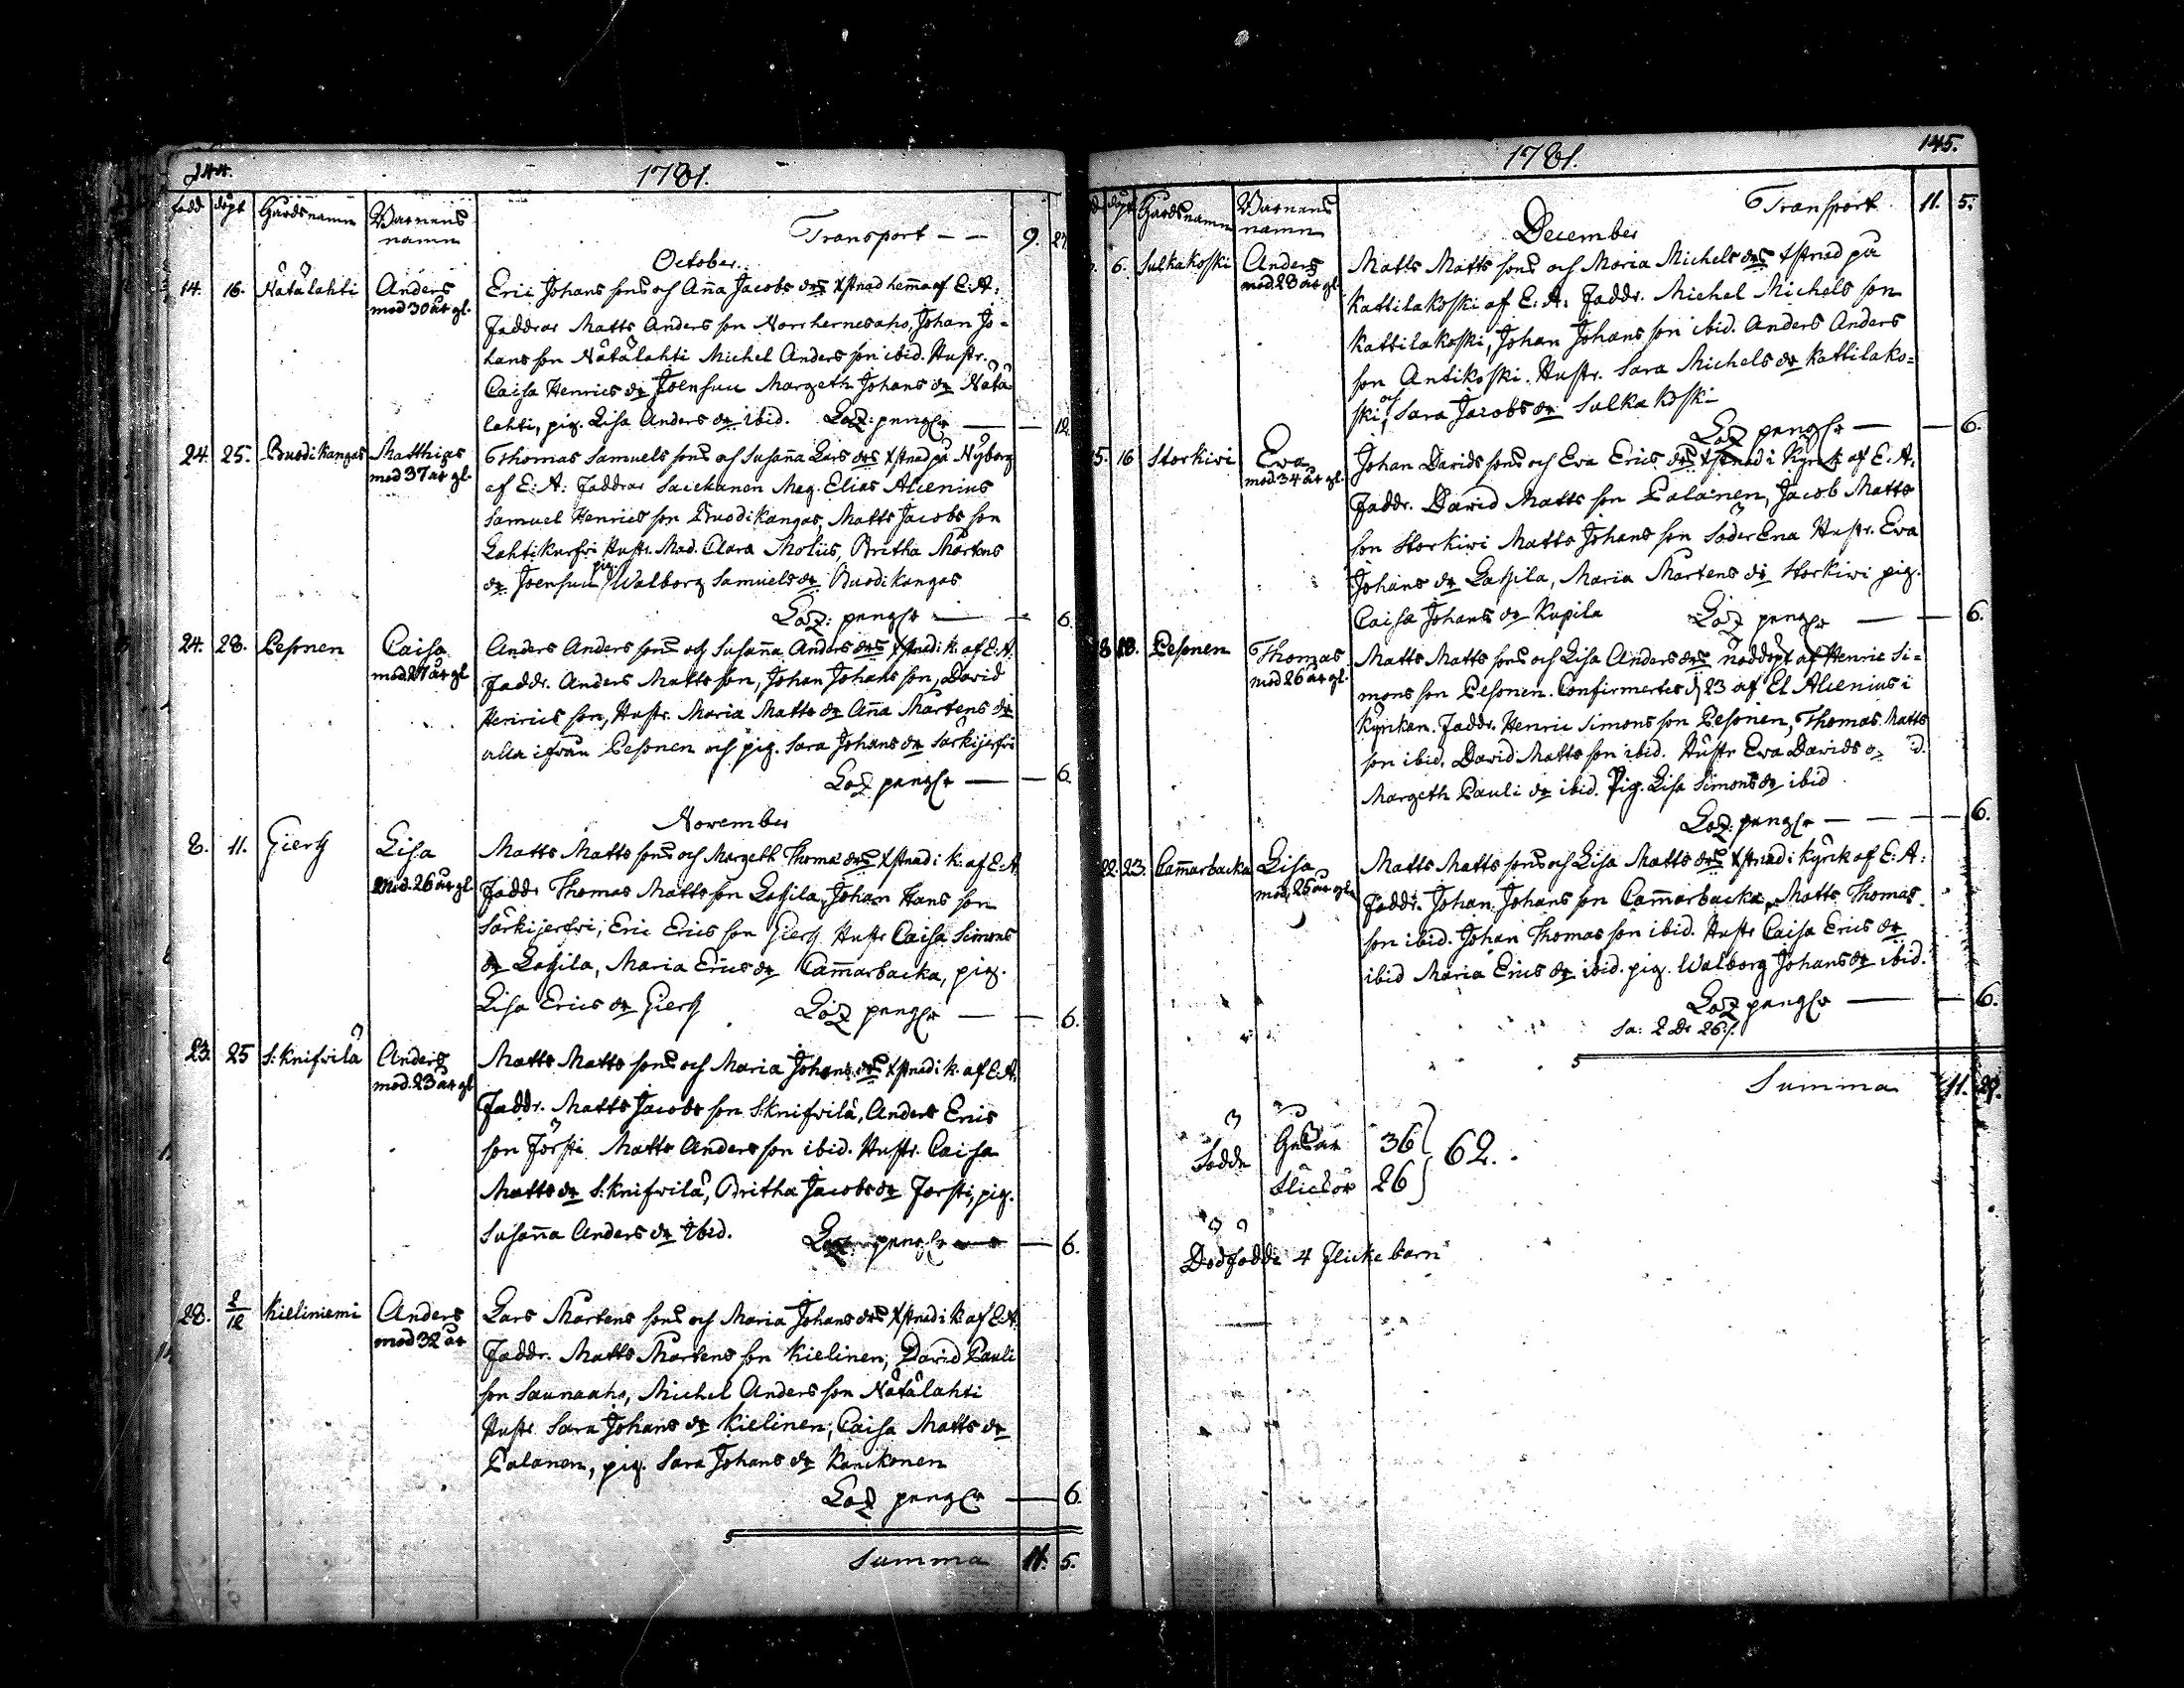 144.
1781.
född döpt Gårdsnamn Barnens namn
Transport — — 9. 27.
October.
14. 16. Nätälahti Anders mod 30 år gl.
Eric Johans sons och Anna Jacobs drs Xstnad hemma af E: A:
Faddrar Matts Anders son Norrhernesaho, Johan Jo-
hans son Nätälahti Michel Anders son ibid. Hustr.
Caisa Henrics dr Joensuu Margeth Johans dr Nätä
lahti, pig. Lisa Anders dr ibid. Laz: pengar — — 12.
24. 25. Buodikangas Matthias mod 37 år gl.
Thomas Samuels sons och Susanna Lars drs Xstnad på Nyborg
af E: A: Faddrar Mag. Elias Alcenius
Samuel Henrics son Buodikangas, Matts Jacobs son
Lahtikurfvi Hustr. Mad. Clara Moliis, Britha Mårtens
dr Joensuu pig. Walborg Samuels dr Buodikangas
Laz: pengar — — 6.
24. 28. Pesonen Caisa mod 27 år gl
Anders Anders sons och Susanna Anders drs Xstnad i k: af E: A:
Faddr. Anders Matts son, Johan Johans son, David
Henrics son, Hustr. Maria Matts dr Anna Mårtens dr
alla ifrån Pesonen och pig. Sara Johans dr Särkijerfvi
Laz pengar — — 6.
November
8. 11. Giers Lisa mod. 26 år gl
Matts Matts sons och Margeth Thomæ drs Xstnad i k: af E: A
Faddr Thomas Matts son Lassila, Johan Hans son
Särkijerfvi, Eric Erics son Giers Hustr Caisa Simons
dr Lassila, Maria Erics dr Cammarbacka, pig.
Lisa Erics dr Giers Laz pengar — — 6.
23. 25 S: Knifvilä Anders mod. 23 år gl
Matts Matts sons och Maria Johans drs Xstnad i k: af E: A:
Faddr. Matts Jacobs son S: Knifvilä, Anders Erics
son Försti Matts Anders son ibid. Hustr. Caisa
Matts dr S: Knifvilä, Britha Jacobs dr Försti, pig.
Susanna Anders dr ibid. Laz pengar — — 6.
28. 2/12 Kieliniemi Anders mod 32 år
Lars Mårtens sons och Maria Johans drs Xstnad i k: af E: A:
Faddr. Matts Mårtens son Kielinen, David Pauli
son Saunaaho, Michel Anders son Nätälahti
Hustr Sara Johans dr Kielinen, Caisa Matts dr
Palanen, pig. Sara Johans dr Kanckonen
Laz pengar — 6.
Summa 11. 5.
145.
1781.
döpt Gårdsnamn Barnens namn
Transport 11. 5.
December
6. Sulkakoski Anders mod 23 år gl
Matts Matts sons och Maria Michels drs Xstnad på
Kattilakoski af E: A: Faddr. Michel Michels son
Kattilakoski, Johan Johans son ibid. Anders Anders
son Antikoski. Hustr. Sara Michels dr Kattilako-
ski, och Sara Jacobs dr Sulkakoski
Laz pengar — — 6.
5. 16 Storkivi Eva mod. 34 år gl.
Johan Davids sons och Eva Erics drs Xstnad i Kyrck af E: A.
Faddr. David Matts son Palainen, Jacob Matts
son Storkivi Matts Johans son SöderEna Hustr. Eva
Johans dr Lassila, Maria Mårtens dr Storkivi pig.
Caisa Johans dr Kupila Laz pengar — — 6.
18. Pesonen Thomas mod 26 år gl.
Matts Matts sons och Lisa Anders drs nöddöpt af Henric Si-
mons son Pesonen. Confirmertes d 23 af El Alcenius i
Kyrkan. Faddr. Henric Simons son Pesonen, Thomas Matts
son ibid. David Matts son ibid. Hustr Eva Davids
Margeth Pauli dr ibid. Pig. Lisa Simons dr ibid
Laz: pengar — — — 6.
22. 23. Cammarbacka Lisa mod 25 år gl
Matts Matts sons och Lisa Matts drs Xstnad i Kyrck af E: A:
Faddr. Johan Johans son Cammarbacka, Matts Thomas
son ibid. Johan Thomas son ibid. Hustr Caisa Erics dr
ibid Maria Erics dr ibid. pig. Walborg Johans dr ibid.
Laz pengar — — 6.
Sa: 2 Dr 26 s.
Summa 11. 29.
Födde Gåssar 36
Flickor 26
62.
Dödfödde 4 Flicke barn